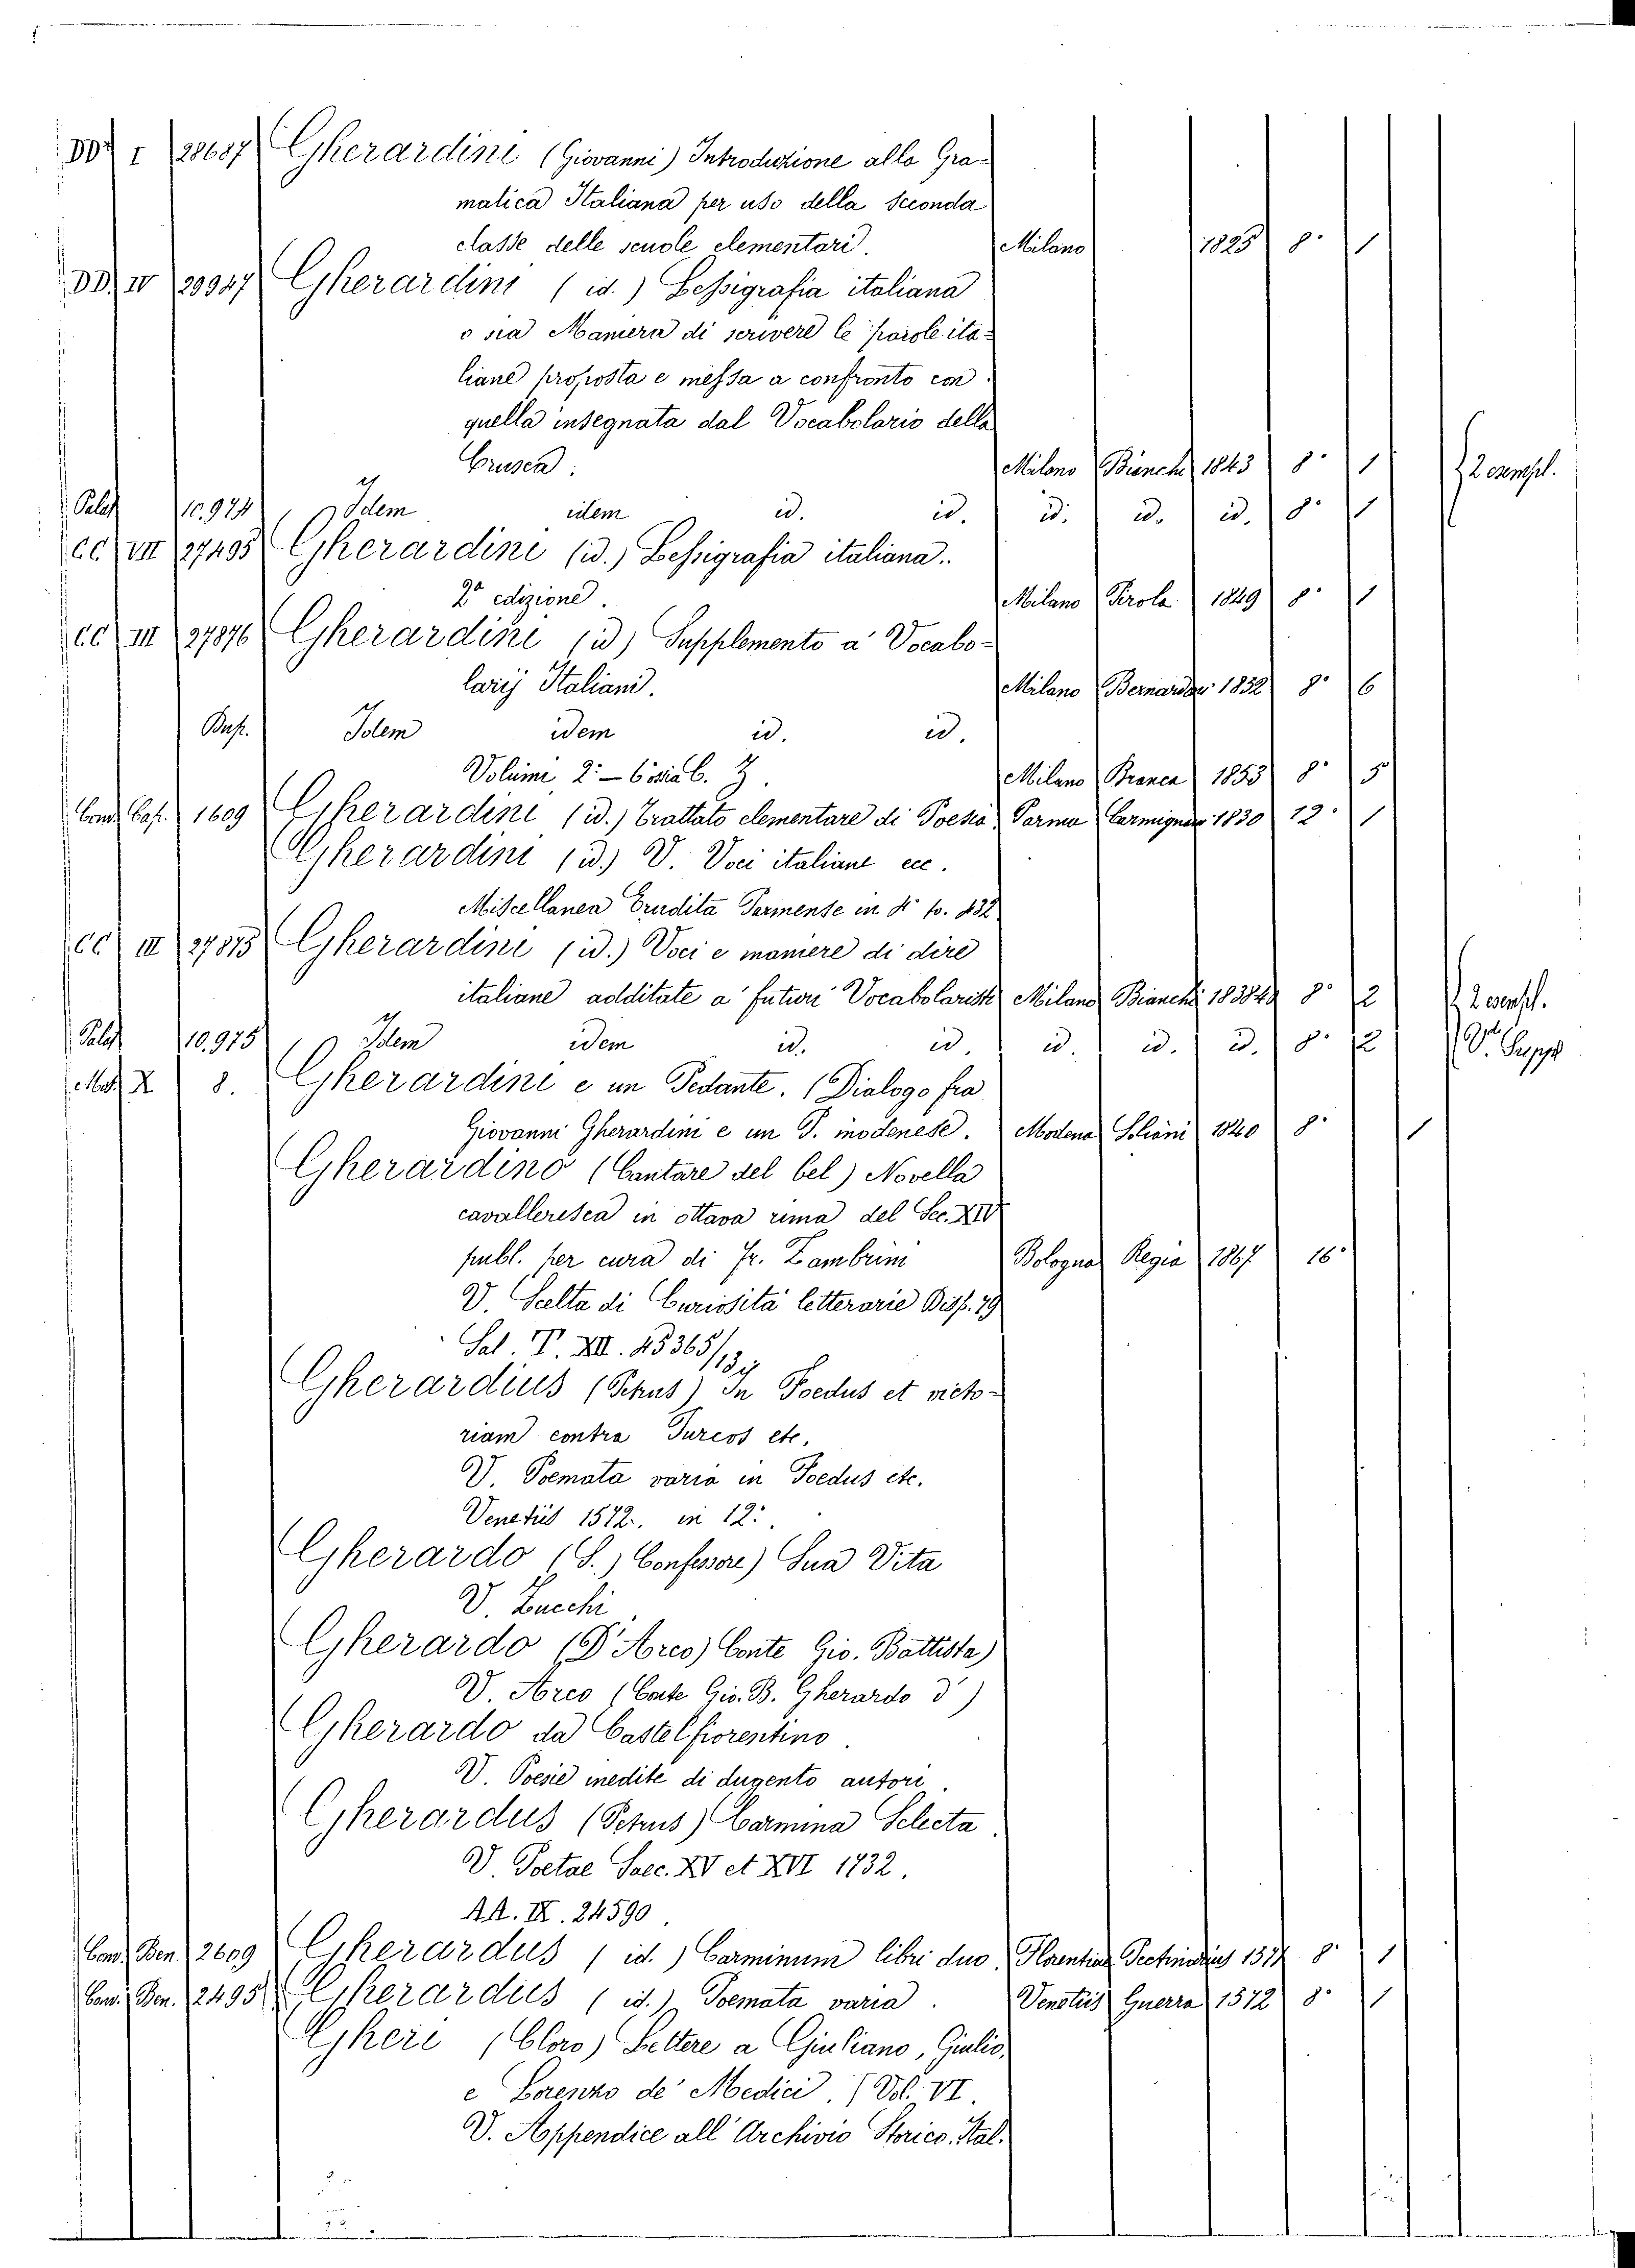 DD I 28687 Gherardini (Giovanni) Introduzione alla Gra-
matica Italiana per uso della seconda
classe delle scuole elementari. Milano 1825 8° 1
DD. IV 29947 Gherardini (id.) Lessigrafia italiana
o sia Maniera di scrivere le parole ita-
liane proposta e messa a confronto con
quella insegnata dal Vocabolario della
Crusca. Milano Bianchi 1843 8° 1 2 esempl.
Palat 10.974 Idem idem id. id. id. id. id. 8° 1
CC VII 27495 Gherardini (id.) Lessigrafia italiana.
2a edizione. Milano Pirola 1849 8° 1
CC III 27876 Gherardini (id) Supplemento a' Vocabo-
larij Italiani. Milano Bernardoni 1852 8° 6
Busp. Idem idem id. id.
Volumi 2° - 6 ossia C. Z. Milano Branca 1853 8° 5
Cond. Cas. 1609 Gherardini (id.) Trattato elementare di Poesia Parma Carmignani 1830 12° 1
Gherardini (id.) V. Voci italiane ecc.
Miscellanea Erudita Parmense in 4° to. 432
CC III 27875 Gherardini (id.) Voci e maniere di dire
italiane additate a' futuri Vocabolaristi Milano Bianchi 183840 8° 2 2 esempl.
Palat 10.975 Idem idem id. id. id. id. id. 8° 2 V. Suppl
Mat. X 8. Gherardini e un Pedante. (Dialogo fra
Giovanni Gherardini e un P. modenese. Modena Soliani 1840 8° 1
Gherardino (Cantare del bel) Novella
cavalleresca in ottava rima del Sec. XIV
publ. per cura di Fr. Zambrini Bologna Regia 1867 16°
V. Scelta di Curiosità letterarie Disp. 79
Sal. T. XII. 45365/134
Gherardius (Petrus) In Foedus et victo-
riam contra Turcos etc.
V. Poemata varia in Foedus etc.
Venetiis 1572. in 12°.
Gherardo (S.) Confessore) Sua Vita
V. Zucchi
Gherardo (D'Arco) Conte Gio. Battista)
V. Arco (Conte Gio. B. Gherardo d')
Gherardo da Castelfiorentino.
V. Poesie inedite di dugento autori.
Gherardus (Petrus) Carmina Selecta.
V. Poetae Saec. XV et XVI 1732.
AA. IX. 24590.
Cond. Ben. 2609 Gherardus (id.) Carminum libri duo. Florentiae 8° 1
Cond. Ben. 2495 Gherardus (id.) Poemata varia. Venetiis Guerra 1572 8° 1
Gheri (Cloro) Lettere a Giuliano, Giulio,
e Lorenzo de' Medici. (Vol. VI.
V. Appendice all'Archivio Storico. Ital.